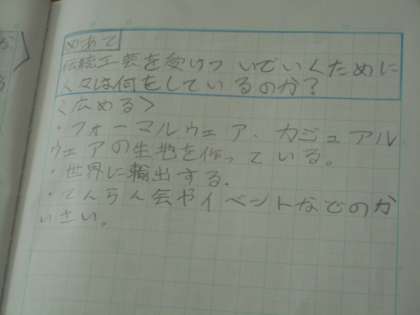 めあて
伝統工芸を受けついでいくために
人々は何をしているのか？
＜広める＞
・フォーマルウェア、カジュアル
ウェアの生地を作っている。
・世界に輸出する。
・てんらん会やイベントなどのか
いさい。